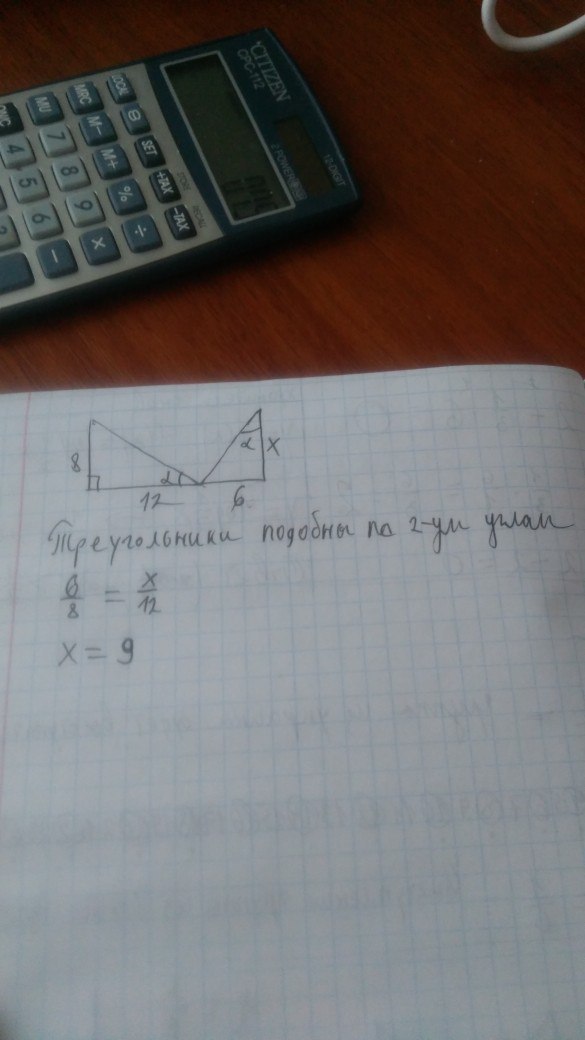 CITIZEN
CPC-112
12-DIGIT
2 POWER
LOCAL
MRC
MU
SET
M-
M+
+TAX
STORE
-TAX
RECALL
%
÷
×
-
7
8
9
4
5
6
8
α
12
α
x
6
Треугольники подобны по 2-ум углам
6/8 = x/12
x = 9